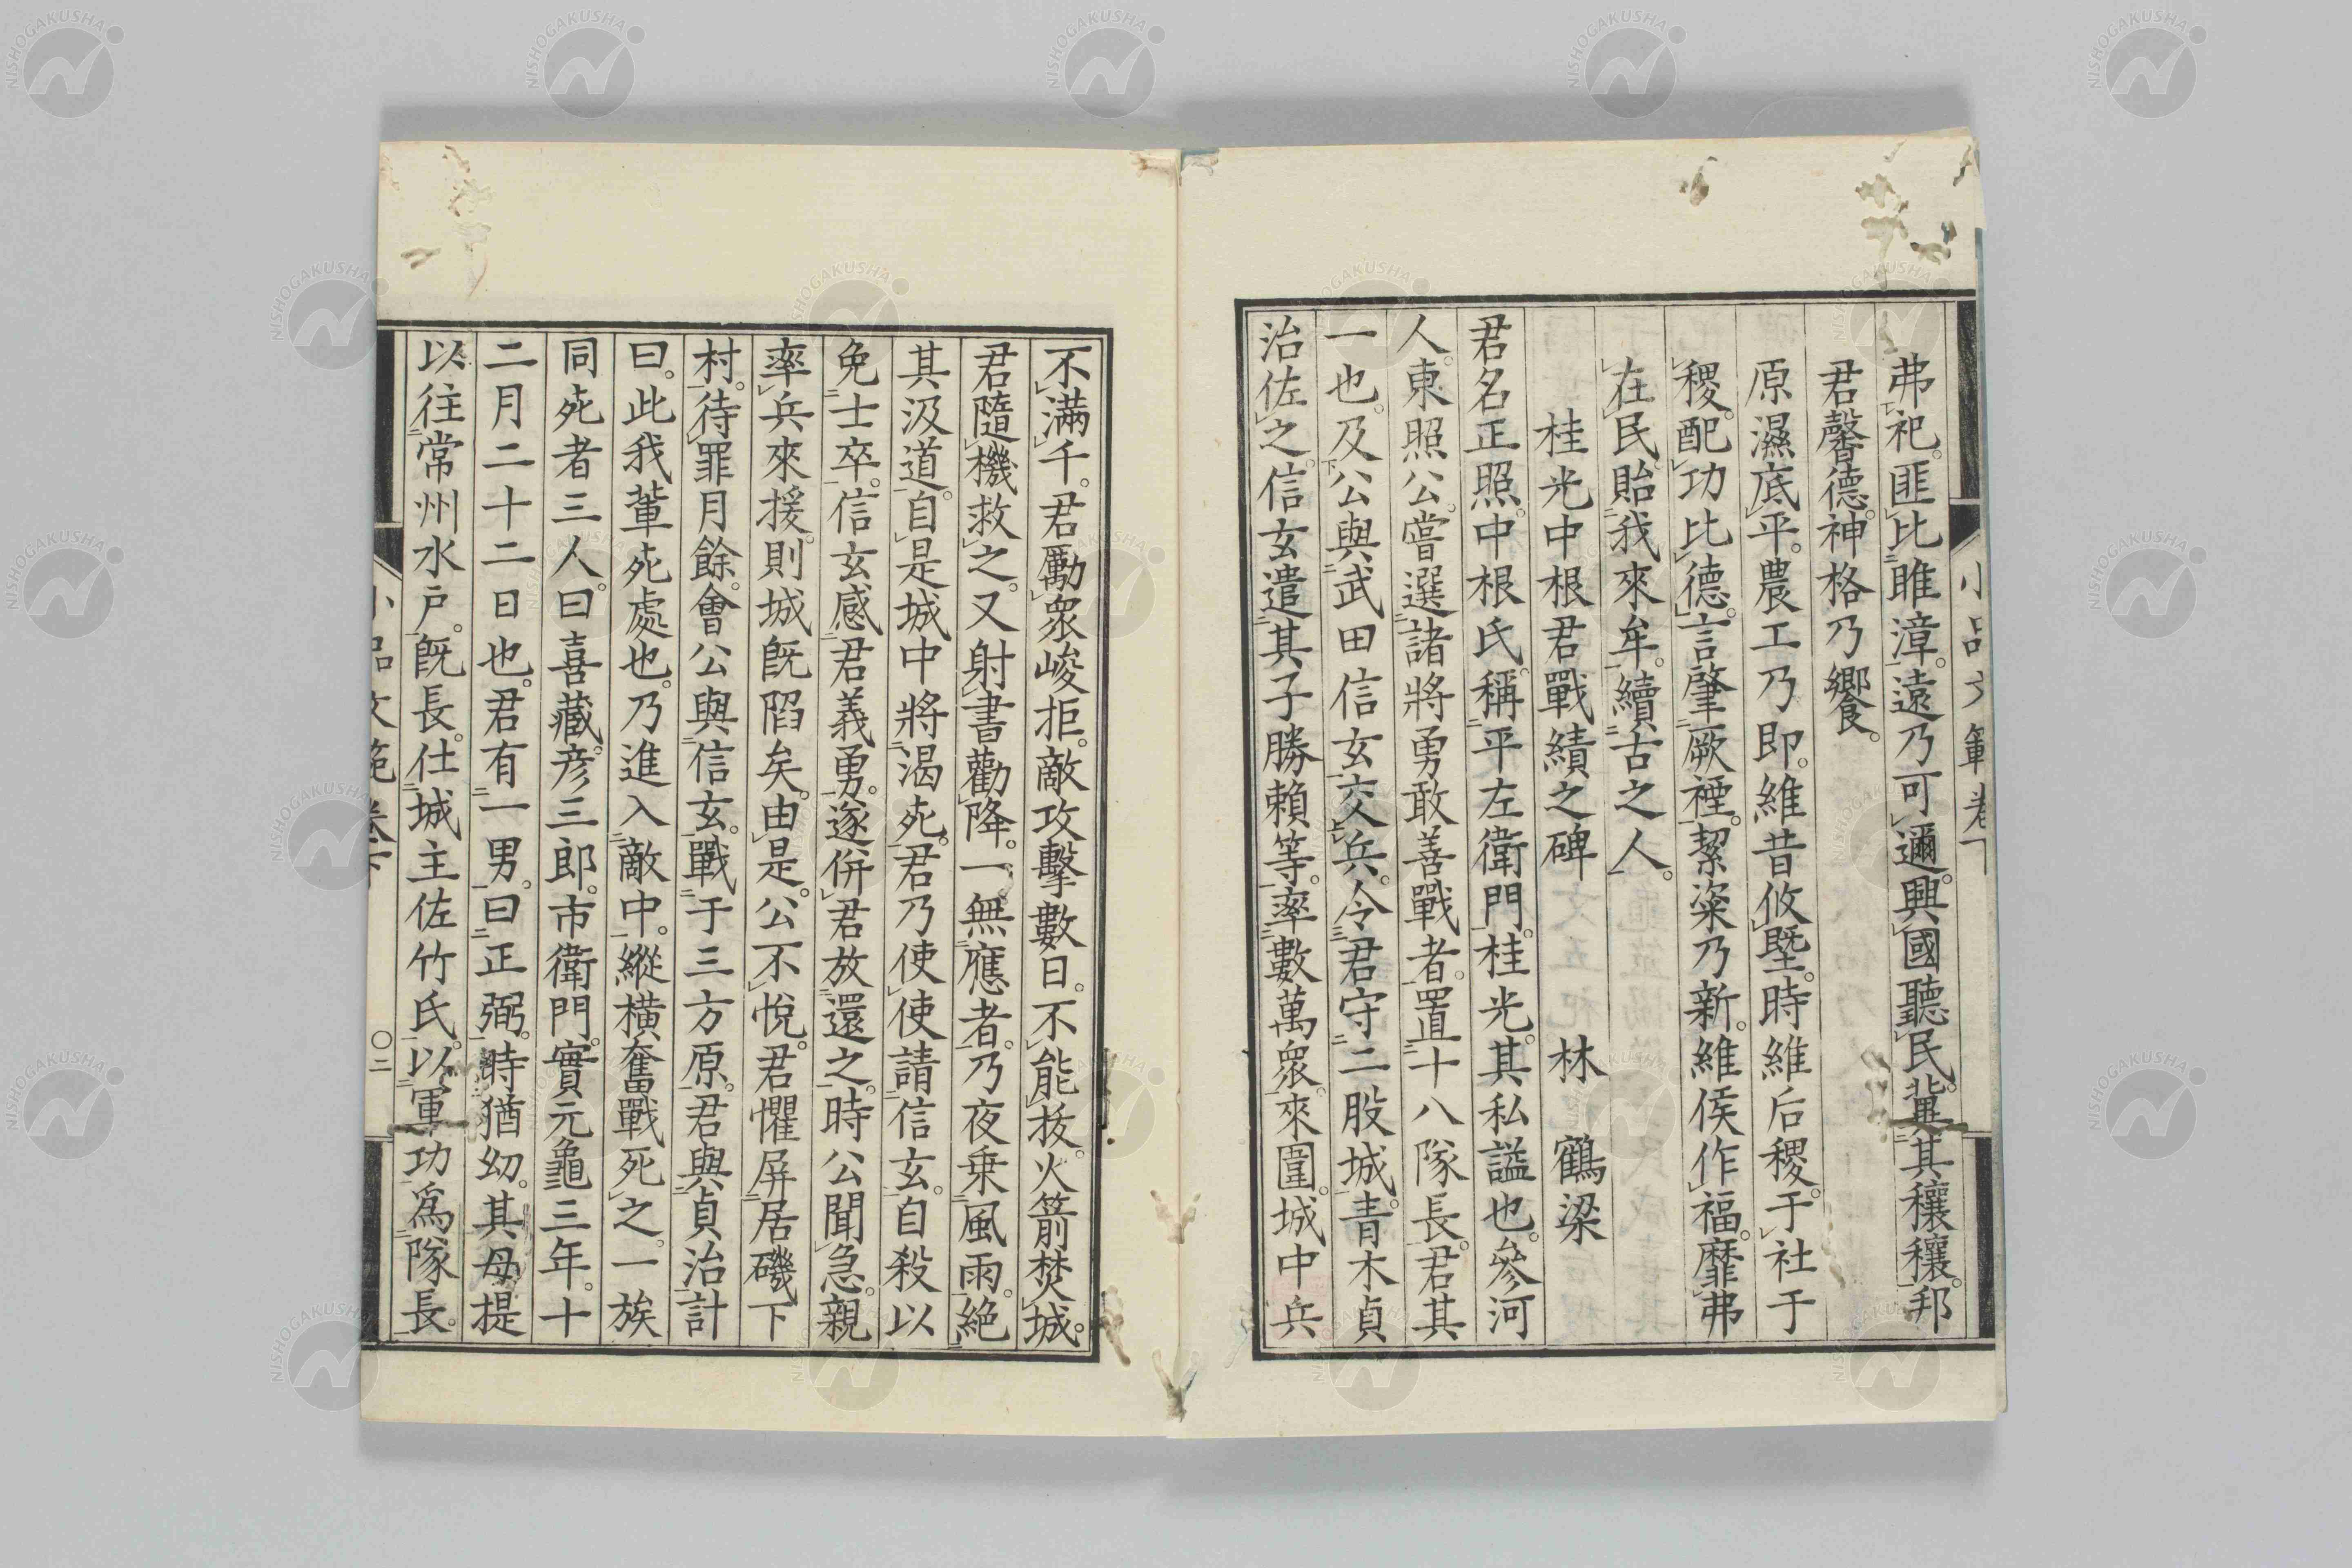 弗祀。匪比雎漳。遠乃可邇。興國聽民。冀其穰穰。邦
君馨德。神格乃饗。
原濕底平。農工乃即。維昔攸曁。時維后稷。于社于
稷。配功比德。言肇厥禋。絜粢乃新。維侯作福。靡弗
在民。貽我來牟。續古之人。
桂光中根君戰績之碑 林 鶴梁
君名正照。中根氏。稱平左衛門。桂光。其私謚也。參河
人。東照公。嘗選諸將勇敢善戰者。置十八隊長。君其
一也。及公與武田信玄交兵。令君守二股城。青木貞
治佐之。信玄遣其子勝賴等。率數萬衆。來圍。城中兵
小品文範卷下
不滿千。君勵衆峻拒。敵攻擊數日。不能拔。火箭焚城。
君隨機救之。又射書勸降。一無應者。乃夜乗風雨。絶
其汲道。自是城中將渴死。君乃使使請信玄。自殺以
免士卒。信玄感君義勇。遂併君放還之。時公聞急。親
率兵來援。則城既陷矣。由是。公不悅。君懼屏居磯下
村。待罪月餘。會公與信玄。戰于三方原。君與貞治計
曰。此我輩死處也。乃進入敵中。縱橫奮戰死之。一族
同死者三人。曰喜藏。彦三郎。市衛門。實元龜三年。十
二月二十二日也。君有一男。曰正弼。時猶幼。其母提
以往常州水戸。既長。仕城主佐竹氏。以軍功爲隊長。
小品文範卷下 〇二